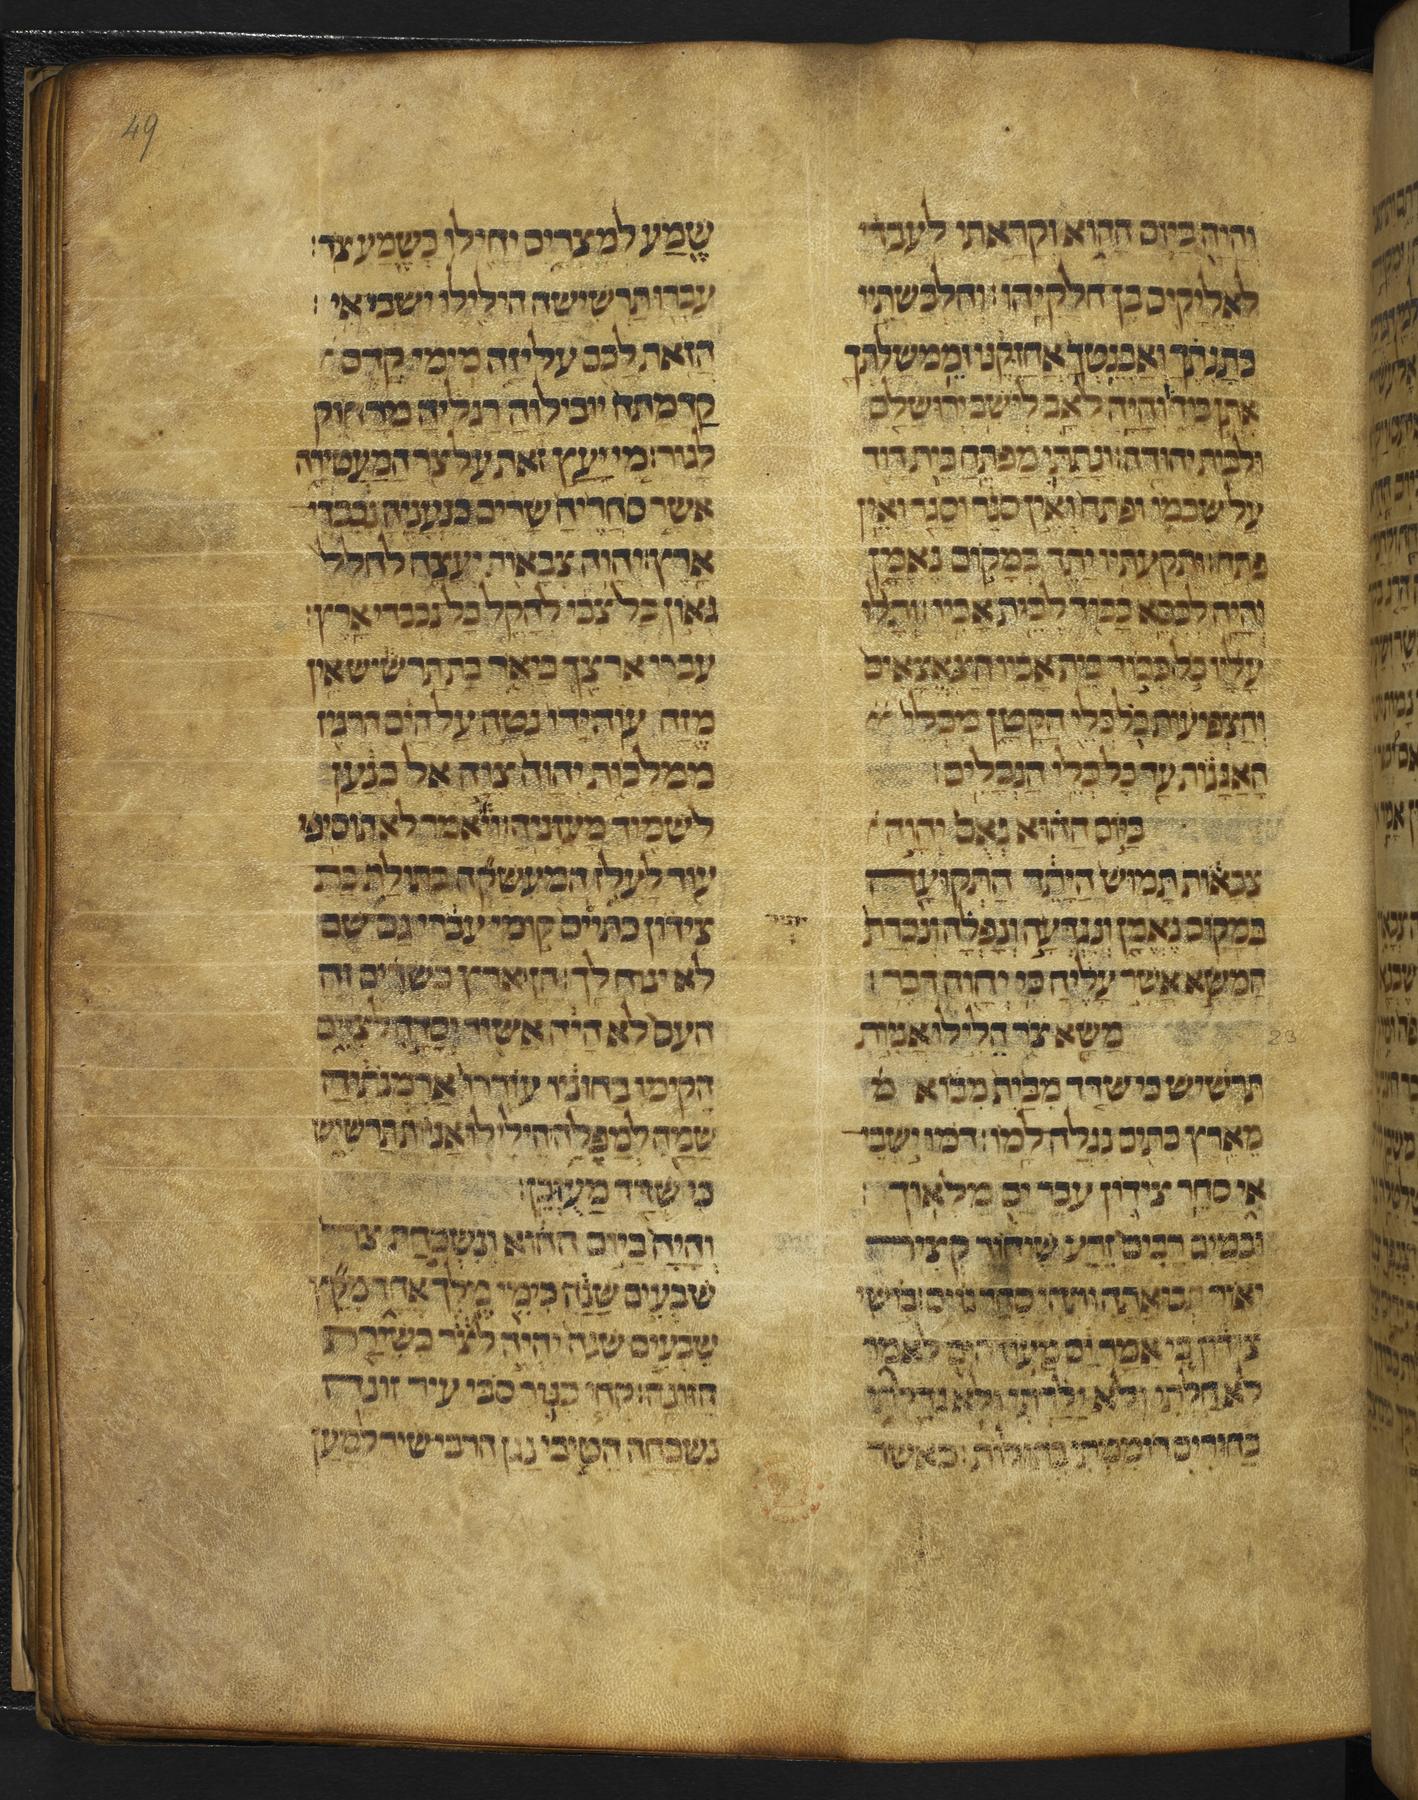 49
והיה ביום ההוא וקראתי לעבדי
לאליקים בן חלקיהו׃ והלבשתיו
כתנתך ואבנטך אחזקנו וממשלתך
אתן בידו והיה לאב ליושב ירושלם
ולבית יהודה׃ ונתתי מפתח בית דוד
על שכמו ופתח ואין סגר וסגר ואין
פתח׃ ותקעתיו יתד במקום נאמן
והיה לכסא כבוד לבית אביו׃ ותלו
עליו כל כבוד בית אביו הצאצאים
והצפיעות כל כלי הקטן מכלי
האגנות עד כל כלי הנבלים׃
ביום ההוא נאם יהוה
צבאות תמוש היתד התקועה
במקום נאמן ונגדעה ונפלה ונכרת
המשא אשר עליה כי יהוה דבר׃
23
משא צר הלילו אניות
תרשיש כי שדד מבית מבוא מ
מארץ כתים נגלה למו׃ דמו ישבי
אי סחר צידון עבר ים מלאוך
ובמים רבים זרע שיחור קציר
יאור תבואתה ותהי סחר גוים׃ בושי
צידון כי אמר ים מעוז הים לאמר
לא חלתי ולא ילדתי ולא גדלתי
בחורים רוממתי בתולות׃ כאשר
שמע למצרים יחילו כשמע צר׃
עברו תרשישה הילילו ישבי אי׃
הזאת לכם עליזה מימי קדם
קדמתה יובילוה רגליה מרחוק
לגור׃ מי יעץ זאת על צר המעטירה
אשר סחריה שרים כנעניה נכבדי
ארץ׃ יהוה צבאות יעצה לחלל
גאון כל צבי להקל כל נכבדי ארץ׃
עברי ארצך כיאר בת תרשיש אין
מזח עוד׃ ידו נטה על הים הרגיז
ממלכות יהוה צוה אל כנען
לשמיד מעזניה׃ ויאמר לא תוסיפי
עוד לעלוז המעשקה בתולת בת
צידון כתיים קומי עברי גם שם
לא ינוח לך׃ הן ארץ כשדים זה
העם לא היה אשור יסדה לציים
הקימו בחוניו עוררו ארמנותיה
שמה למפלה׃ הילילו אניות תרשיש
כי שדד מעזכן׃
והיה ביום ההוא ונשכחת צר
שבעים שנה כימי מלך אחד מקץ
שבעים שנה יהיה לצר כשירת
הזונה׃ קחי כנור סבי עיר זונה
נשכחה הטיבי נגן הרבי שיר למען